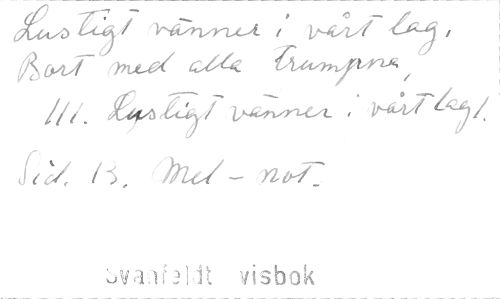 Lustigt vänner i vårt lag,
Bort med alla trumpna,
///. Lustigt vänner i vårt lag/.
Sid. 13. Mel-not.
Svanfeldt visbok